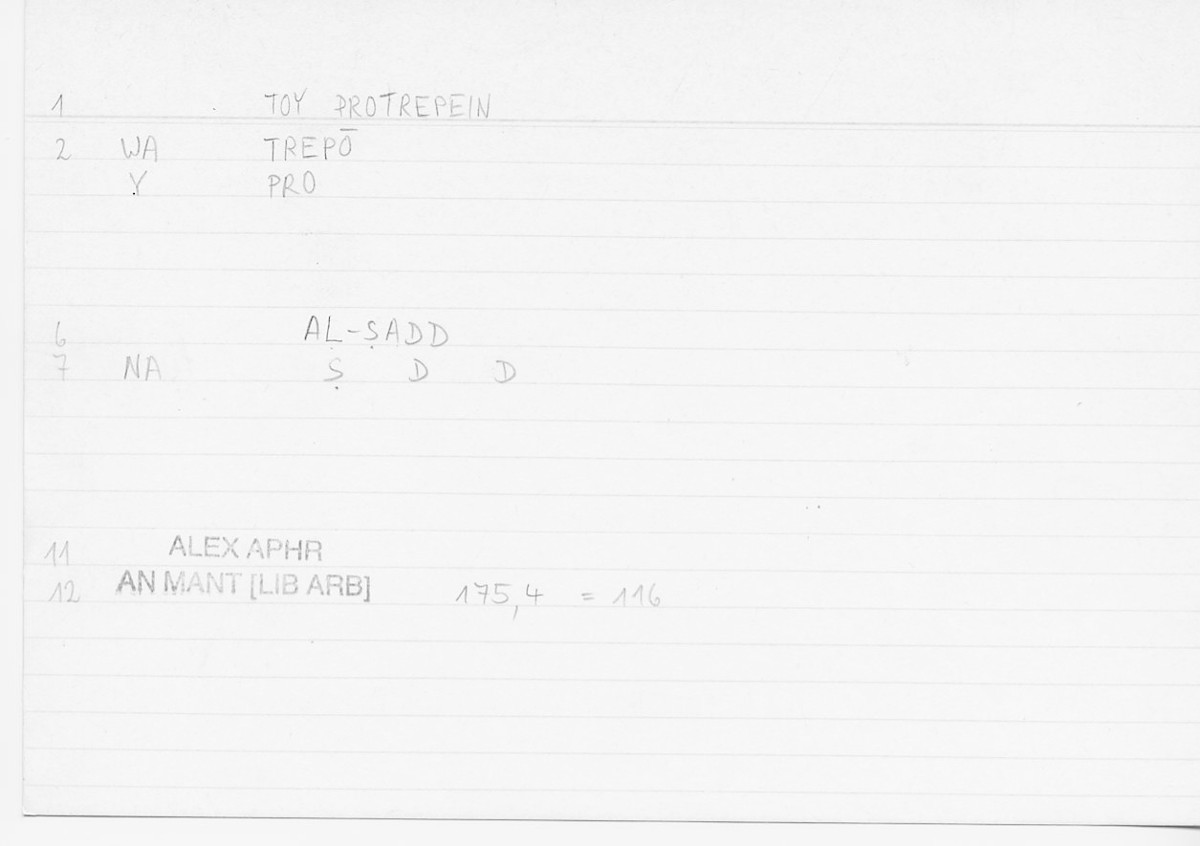 1 TOY PROTREPEIN
2 WA TREPŌ
Y PRO
6 AL-ṢADD
7 NA Ṣ D D
11 ALEX APHR
12 AN MANT [LIB ARB] 175,4 = 116